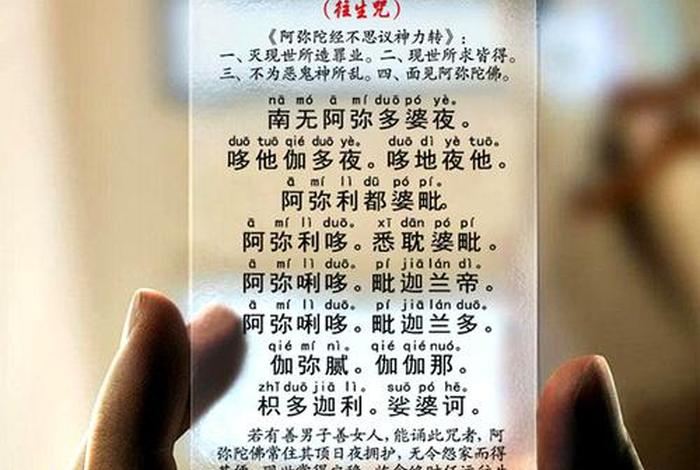 (往生咒)
《阿弥陀经不思议神力转》:
一、灭现世所造罪业。二、现世所求皆得。
三、不为恶鬼神所乱。四、面见阿弥陀佛。
nā mó ā mí duō pó yè。
南无阿弥多婆夜。
duō tuō qié duō yè。 duō dì yè tuō。
哆他伽多夜。哆地夜他。
ā mí lì dū pó pí。
阿弥利都婆毗。
ā mí lì duō。 xī dān pó pí
阿弥利哆。悉耽婆毗。
ā mí lì duō。 pí jiā lán dì。
阿弥唎哆。毗迦兰帝。
ā mí lì duō。 pí jiā lán duō。
阿弥唎哆。毗迦兰多。
qié mí nì。 qié qié nuó。
伽弥腻。伽伽那。
zhǐ duō jiā lì。 suō pó hē。
枳多迦利。娑婆诃。
若有善男子善女人,能诵此咒者,阿
弥陀佛常住其顶日夜拥护,无令怨家而得